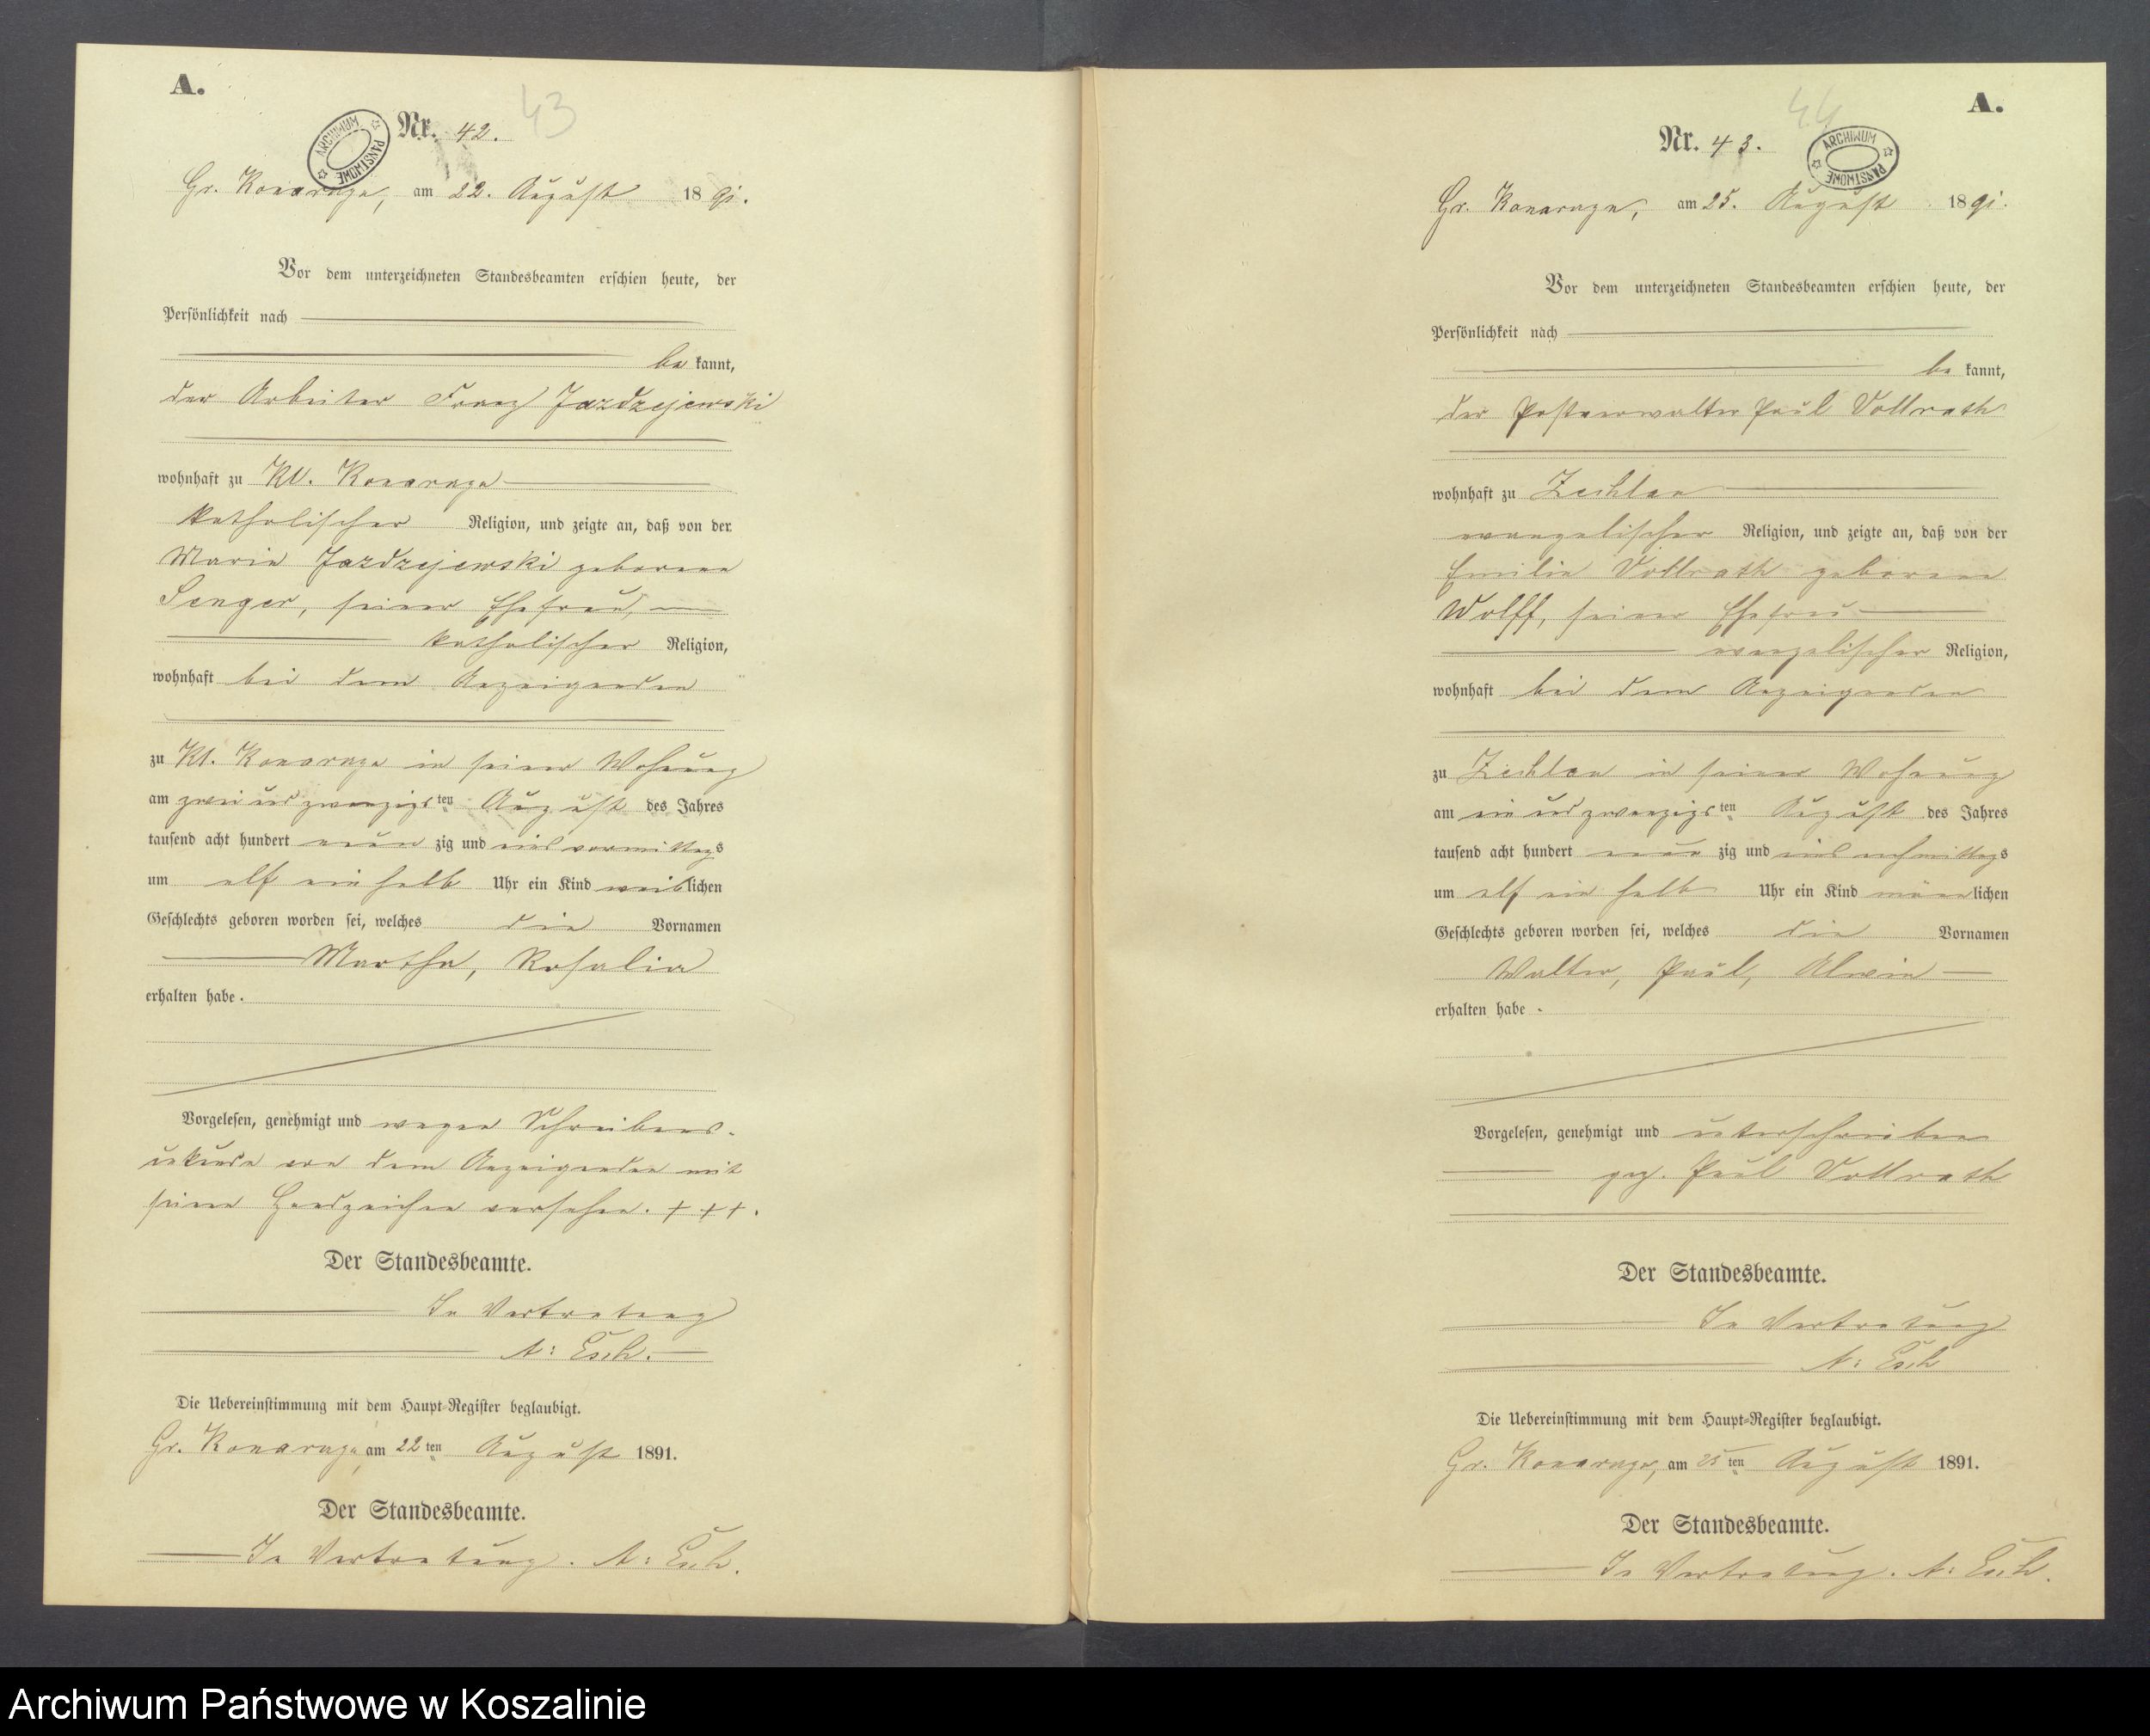 A.
43
ARCHIWUM PAŃSTWOWE
Nr. 42.
Gr. Konarzyn, am 22. August 1891.
Vor dem unterzeichneten Standesbeamten erschien heute, der
Persönlichkeit nach
be kannt,
der Arbeiter Franz Jazdzejewski
wohnhaft zu Kl. Konarzyn
katholischer Religion, und zeigte an, daß von der
Maria Jazdzejewski geborene
Senger, seiner Ehefrau,
katholischer Religion,
wohnhaft bei dem Anzeigenden
zu Kl. Konarzyn in seiner Wohnung
am zwei und zwanzigsten August des Jahres
tausend acht hundert neun zig und eins vormittags
um elf ein halb Uhr ein Kind weiblichen
Geschlechts geboren worden sei, welches die Vornamen
Martha, Rosalia
erhalten habe.
Vorgelesen, genehmigt und wegen Schreibens-
unkunde von dem Anzeigenden mit
seinen Handzeichen versehen. + + +.
Der Standesbeamte.
In Vertretung
A: Esch.
Die Uebereinstimmung mit dem Haupt-Register beglaubigt.
Gr. Konarzyn, am 22ten August 1891.
Der Standesbeamte.
In Vertretung. A: Esch.
A.
44
ARCHIWUM PAŃSTWOWE
Nr. 43.
Gr. Konarzyn, am 25. August 1891.
Vor dem unterzeichneten Standesbeamten erschien heute, der
Persönlichkeit nach
be kannt,
der Postverwalter Paul Vollrath
wohnhaft zu Zechlau
evangelischer Religion, und zeigte an, daß von der
Emilie Vollrath geborene
Wolff, seiner Ehefrau
evangelischer Religion,
wohnhaft bei dem Anzeigenden
zu Zechlau in seiner Wohnung
am ein und zwanzigsten August des Jahres
tausend acht hundert neun zig und eins nachmittags
um elf ein halb Uhr ein Kind männlichen
Geschlechts geboren worden sei, welches die Vornamen
Walter, Paul, Alwin
erhalten habe.
Vorgelesen, genehmigt und unterschrieben
gez. Paul Vollrath
Der Standesbeamte.
In Vertretung
A: Esch
Die Uebereinstimmung mit dem Haupt-Register beglaubigt.
Gr. Konarzyn, am 25ten August 1891.
Der Standesbeamte.
In Vertretung. A: Esch.
Archiwum Państwowe w Koszalinie